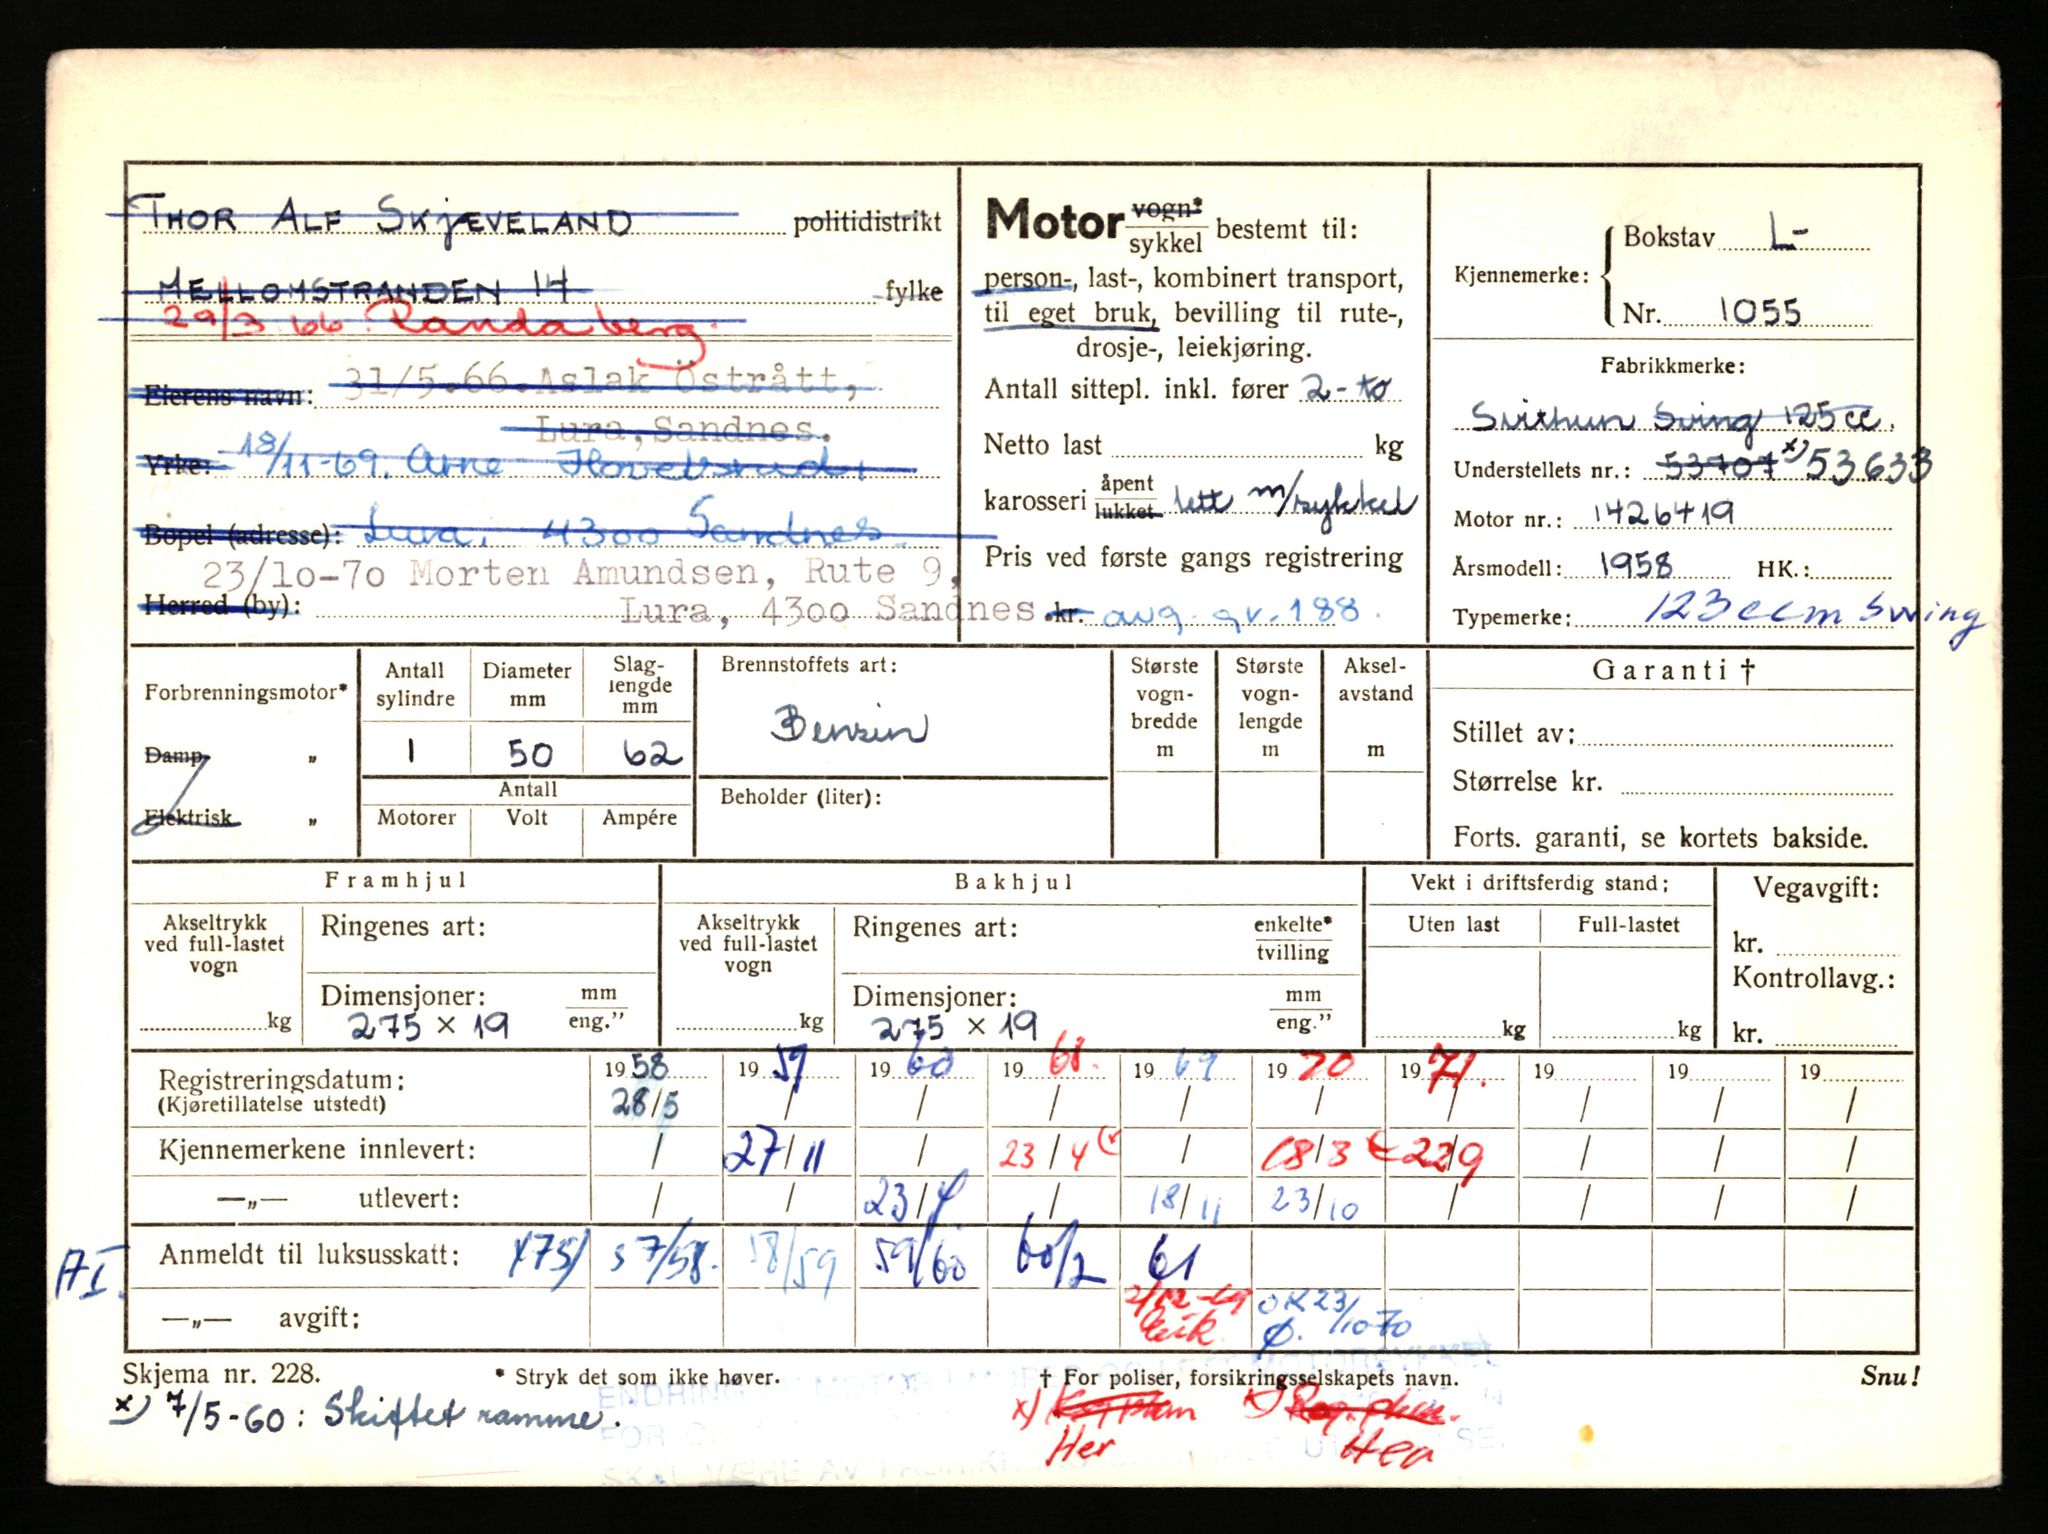 THOR ALF SKJÆVELAND politidistrikt
MELLOMSTRANDEN 14 fylke
29/3 66 Randaberg.
Eierens navn: 31/5.66. Aslak Östrått,
Lura, Sandnes.
Yrke: 18/11-69. Arne
Bopel (adresse): Lura, 4300 Sandnes
23/10-70 Morten Amundsen, Rute 9,
Herred (by): Lura, 4300 Sandnes.
Motor vogn* / sykkel bestemt til:
person-, last-, kombinert transport,
til eget bruk, bevilling til rute-,
drosje-, leiekjøring.
Antall sittepl. inkl. fører 2-to
Netto last kg
karosseri åpent / lukket lett m/sykkel
Pris ved første gangs registrering
kr. avg. gr. 188.
Kjennemerke: Bokstav L-
Nr. 1055
Fabrikkmerke:
Svithun Sving 125 cc.
Understellets nr.: 53707 x) 53633
Motor nr.: 1426419
Årsmodell: 1958 HK.:
Typemerke: 123 ccm Sving
Forbrenningsmotor*
Damp "
Elektrisk "
Antall sylindre
1
Diameter mm
50
Slag-lengde mm
62
Antall
Motorer Volt Ampére
Brennstoffets art:
Bensin
Beholder (liter):
Største vogn-bredde m
Største vogn-lengde m
Aksel-avstand m
Garanti †
Stillet av:
Størrelse kr.
Forts. garanti, se kortets bakside.
Framhjul
Akseltrykk ved full-lastet vogn
kg
Ringenes art:
Dimensjoner: mm / eng."
275 × 19
Bakhjul
Akseltrykk ved full-lastet vogn
kg
Ringenes art: enkelte* / tvilling
Dimensjoner: mm / eng."
275 × 19
Vekt i driftsferdig stand:
Uten last Full-lastet
kg kg
Vegavgift:
kr.
Kontrollavg.:
kr.
Registreringsdatum: 1958 1959 1960 1968. 1969 1970 1971. 19 19 19
(Kjøretillatelse utstedt) 28/5 / / / / / / / / /
Kjennemerkene innlevert: / 27/11 / 23/4 (x / 18/3 x 22/9 / / /
—„— utlevert: / / 23/4 / 18/11 23/10 / / / /
Anmeldt til luksusskatt: x75/ 57/58. 58/59 59/60 60/2 61
A I.
—„— avgift: OK 23/10-70
Skjema nr. 228.
* Stryk det som ikke høver.
† For poliser, forsikringsselskapets navn.
Snu!
x) 7/5-60: Skiftet ramme.
x) Her
x) Her